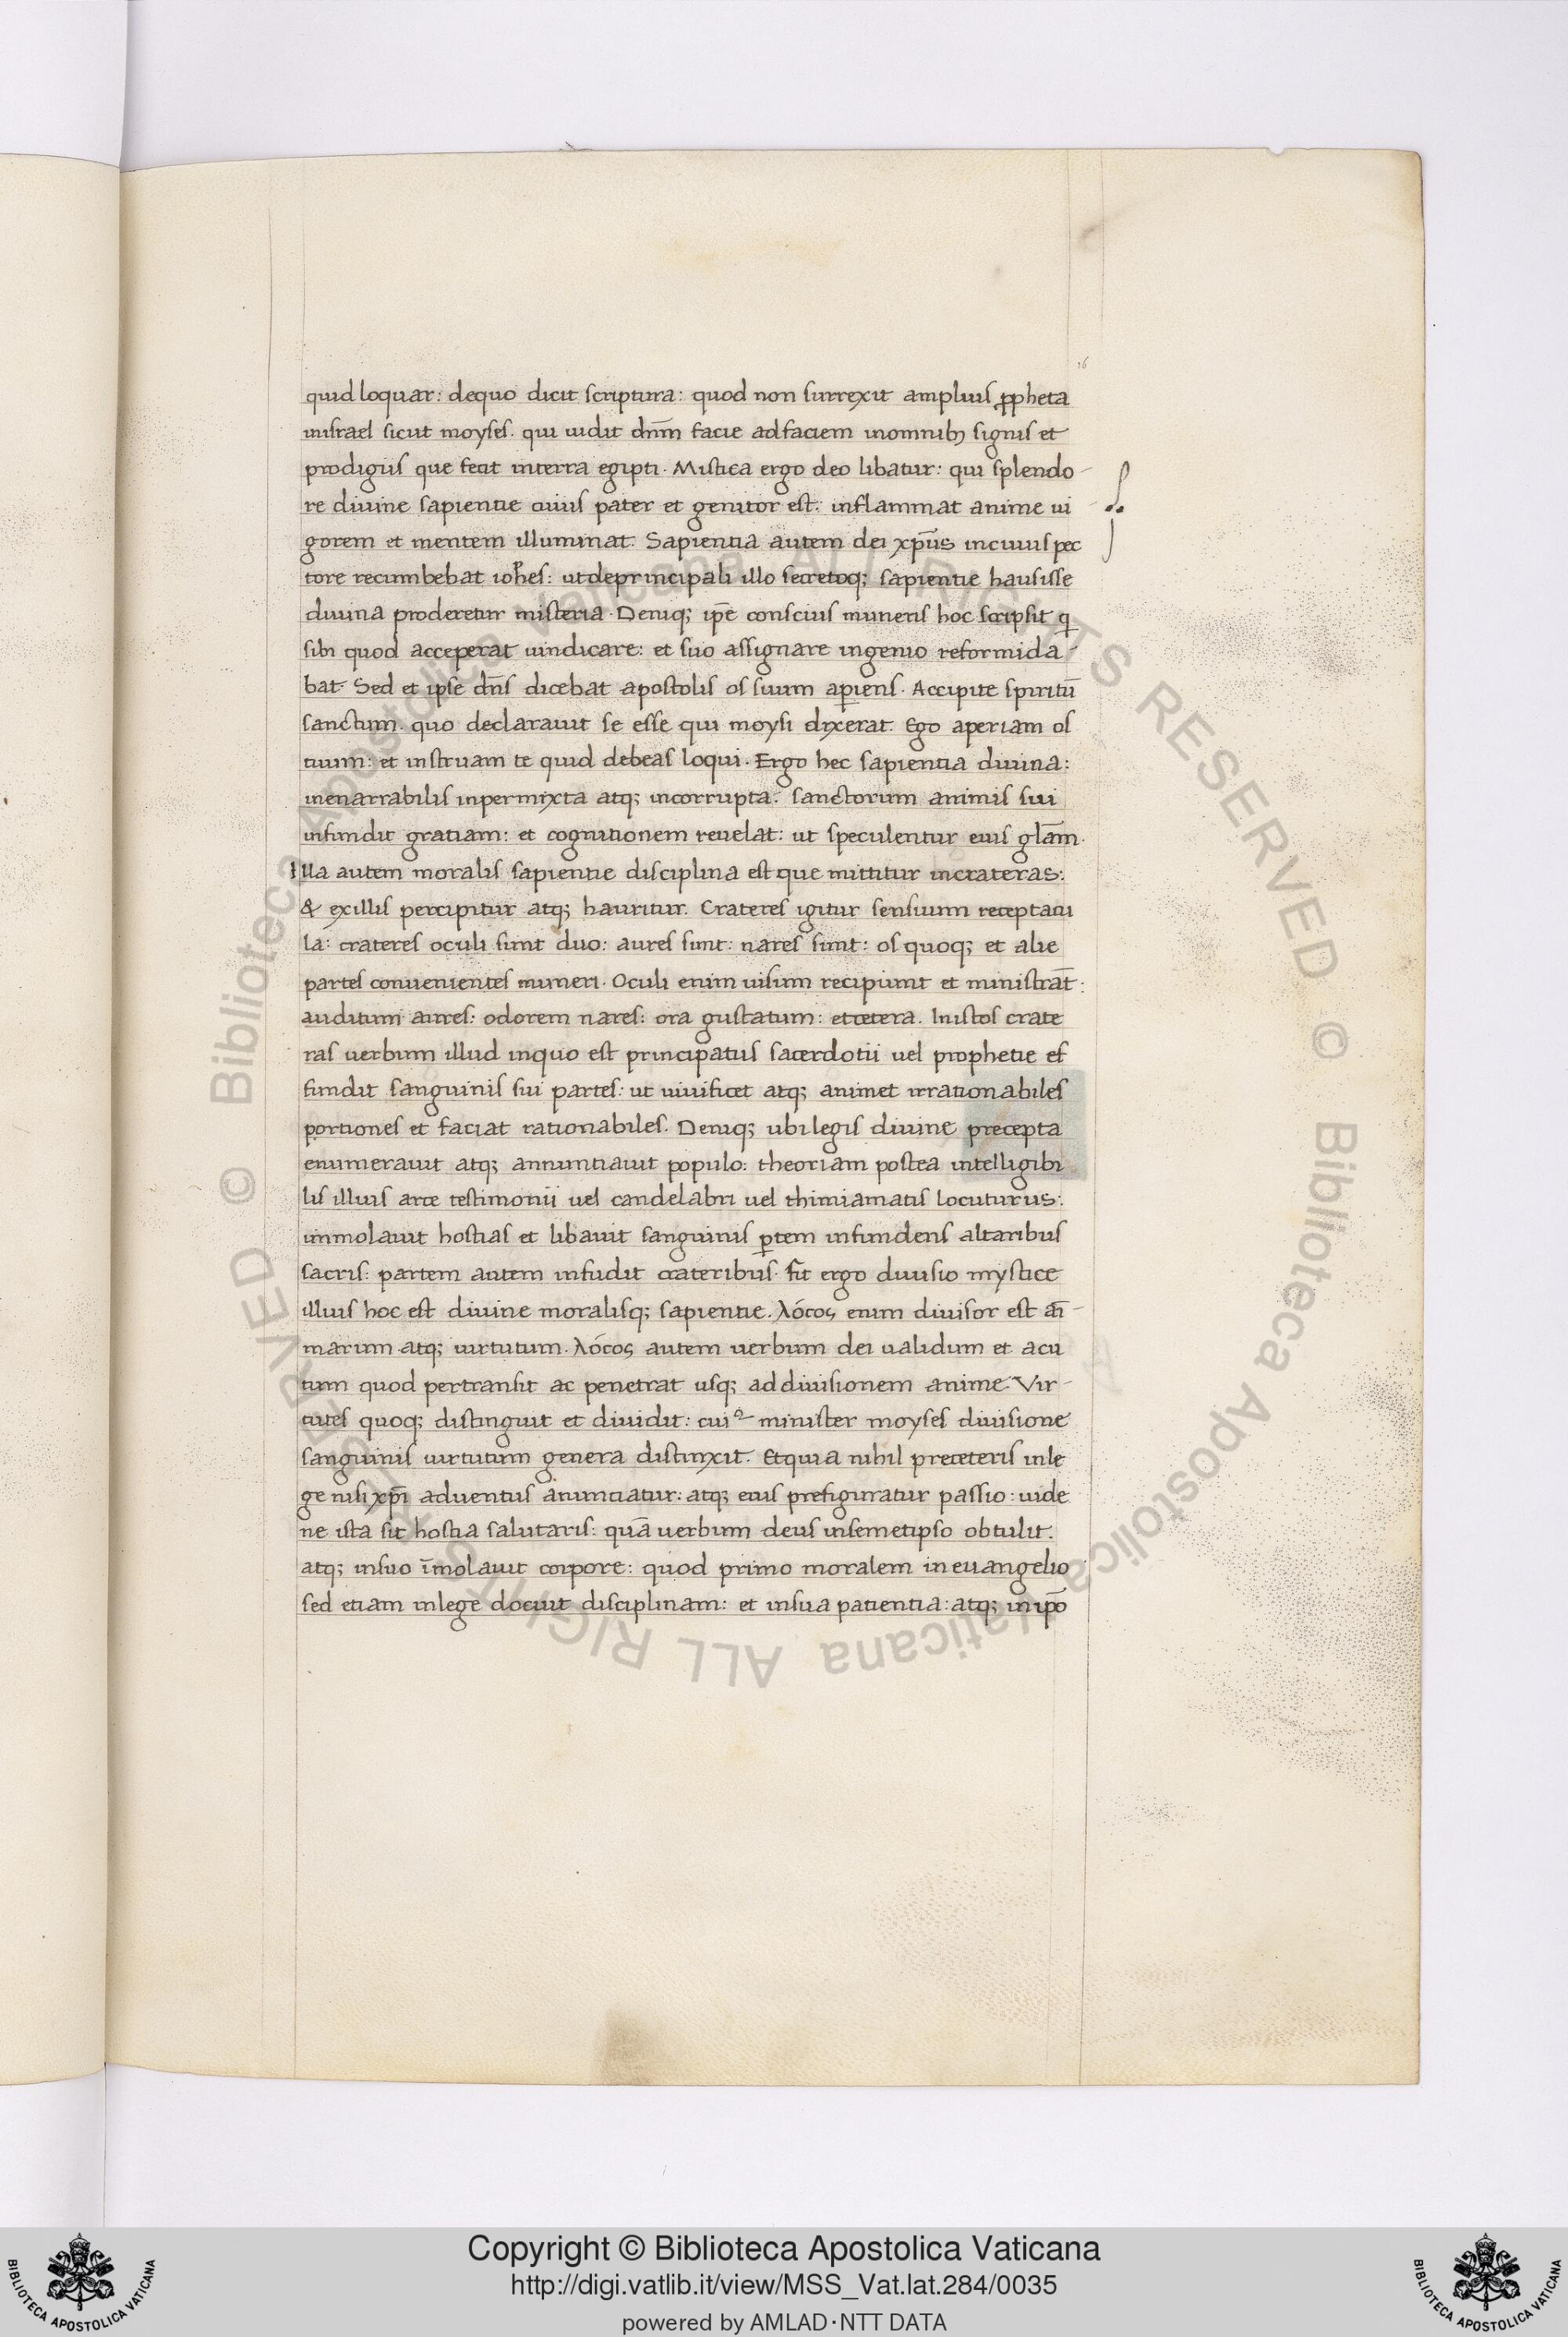 16
quid loquar: dequo dicit scriptura: quod non surrexit amplius ꝓpheta
inisrael sicut moyses. qui uidit dn̄m facie adfaciem inomnibꝫ signis et
prodigiis que fecit interra egipti. Mistica ergo deo libatur: qui splendo-
re diuine sapientie cuius pater et genitor est: inflammat anime ui
gorem et mentem illuminat. Sapientia autem dei xp̄us incuius pec
tore recumbebat ioh̄es: ut deprincipali illo secretoqꝫ sapientie hausisse
diuina proderetur misteria. Deniqꝫ ip̄e conscius muneris hoc scripsit ꝗ
sibi quod acceperat uindicare: et suo assignare ingenio reformida-
bat. Sed et ipse dn̄s dicebat apostolis os suum aꝑiens. Accipite spiritū
sanctum. quo declarauit se esse qui moysi dixerat. Ego aperiam os
tuum: et instruam te quid debeas loqui. Ergo hec sapientia diuina:
inenarrabilis inpermixta atqꝫ incorrupta: sanctorum animis sui
infundit gratiam: et cognitionem reuelat: ut speculentur eius glām.
Illa autem moralis sapientie disciplina est que mittitur incrateras:
& exillis percipitur atqꝫ hauritur. Crateres igitur sensuum receptacu
la: crateres oculi sunt duo: aures sunt: nares sunt: os quoqꝫ et alie
partes conuenientes muneri. Oculi enim uisum recipiunt et ministrāt:
auditum aures: odorem nares: ora gustatum: etcetera. Inistos crate
ras uerbum illud inquo est principatus sacerdotii uel prophetie ef
fundit sanguinis sui partes: ut uiuificet atqꝫ animet irrationabiles
portiones et faciat rationabiles. Deniqꝫ ubi legis diuine precepta
enumerauit atqꝫ annuntiauit populo: theoriam postea intelligibi
lis illius arce testimonii uel candelabri uel thimiamatis locuturus:
immolauit hostias et libauit sanguinis ꝑtem infundens altaribus
sacris: partem autem infudit crateribus. Fit ergo diuisio mystice
illius hoc est diuine moralisqꝫ sapientie. λόγος enim diuisor est aī-
marum atqꝫ uirtutum. λόγος autem uerbum dei ualidum et acu
tum quod pertransit ac penetrat usqꝫ ad diuisionem anime. Vir-
tutes quoqꝫ distinguit et diuidit: cui⁹ minister moyses diuisione
sanguinis uirtutum genera distinxit. Et quia nihil preceteris inle
ge nisi xp̄i aduentus anunciatur: atqꝫ eius prefiguratur passio: uide
ne ista sit hostia salutaris: quā uerbum deus insemetipso obtulit.
atqꝫ insuo īmolauit corpore: quod primo moralem in euangelio
sed etiam inlege docuit disciplinam: et insua patientia: atqꝫ inip̄o
Copyright © Biblioteca Apostolica Vaticana
http://digi.vatlib.it/view/MSS_Vat.lat.284/0035
powered by AMLAD·NTT DATA
© Biblioteca Apostolica Vaticana ALL RIGHTS RESERVED © Biblioteca Apostolica Vaticana ALL RIGHTS RESERVED
BIBLIOTECA APOSTOLICA VATICANA
BIBLIOTECA APOSTOLICA VATICANA